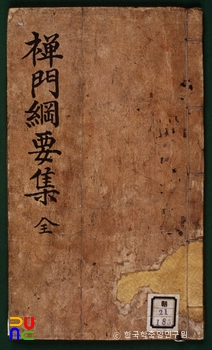 禅門綱要集 全
朝
21
18
© 한국학중앙연구원